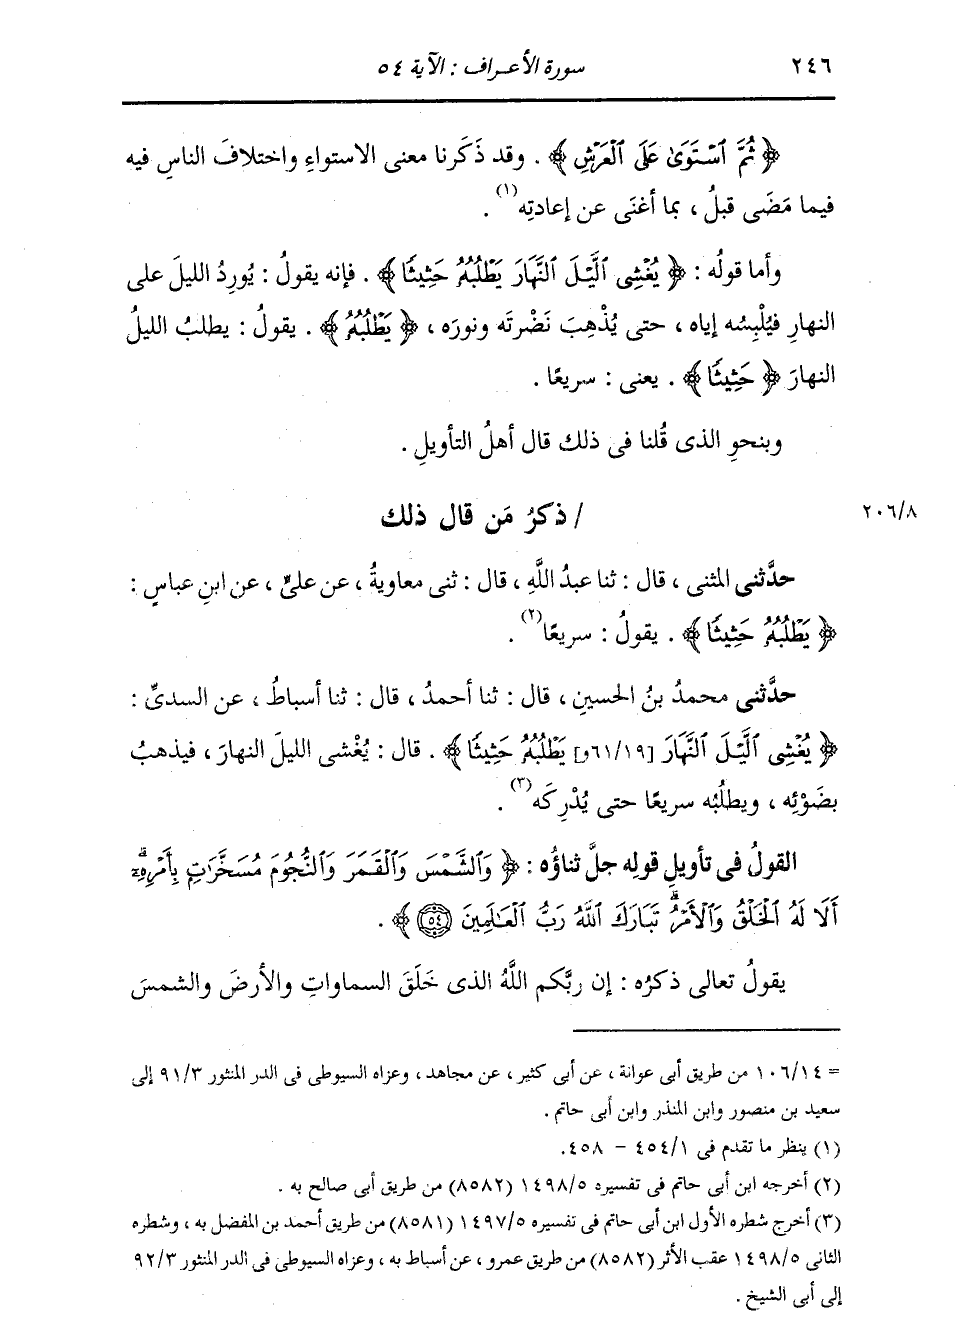 ٢٤٦ سورة الأعراف : الآية ٥٤
﴿ ثُمَّ ٱسْتَوَىٰ عَلَى ٱلْعَرْشِ ﴾ . وقد ذَكَرنا معنى الاستواءِ واختلافَ الناسِ فيه
فيما مَضَى قبلُ ، بما أغنَى عن إعادتِه(١) .
وأما قولُه : ﴿ يُغْشِى ٱلَّيْلَ ٱلنَّهَارَ يَطْلُبُهُۥ حَثِيثًا ﴾ . فإنه يقولُ : يُورِدُ الليلَ على
النهارِ فيُلْبِسُه إياه ، حتى يُذْهِبَ نَضْرتَه ونورَه ، ﴿ يَطْلُبُهُۥ ﴾ . يقولُ : يطلبُ الليلُ
النهارَ ﴿ حَثِيثًا ﴾ . يعنى : سريعًا .
وبنحوِ الذى قُلنا فى ذلك قال أهلُ التأويلِ .
٢٠٦/٨ / ذكرُ مَن قال ذلك
حدَّثنى المثنى ، قال : ثنا عبدُ اللَّهِ ، قال : ثنى معاويةُ ، عن علىٍّ ، عن ابنِ عباسٍ :
﴿ يَطْلُبُهُۥ حَثِيثًا ﴾ . يقولُ : سريعًا(٢) .
حدَّثنى محمدُ بنُ الحسينِ ، قال : ثنا أحمدُ ، قال : ثنا أسباطُ ، عن السدىِّ :
﴿ يُغْشِى ٱلَّيْلَ ٱلنَّهَارَ [٦١/١٩و] يَطْلُبُهُۥ حَثِيثًا ﴾ . قال : يُغْشى الليلَ النهارَ ، فيذهبُ
بضَوْئِه ، ويطلُبُه سريعًا حتى يُدْرِكَه(٣) .
القولُ فى تأويلِ قولِه جلَّ ثناؤُه : ﴿ وَٱلشَّمْسَ وَٱلْقَمَرَ وَٱلنُّجُومَ مُسَخَّرَٰتٍۭ بِأَمْرِهِۦٓ ۗ
أَلَا لَهُ ٱلْخَلْقُ وَٱلْأَمْرُ ۗ تَبَارَكَ ٱللَّهُ رَبُّ ٱلْعَٰلَمِينَ ۝٥٤ ﴾ .
يقولُ تعالى ذكرُه : إن ربَّكم اللَّهُ الذى خَلَقَ السماواتِ والأرضَ والشمسَ
= ١٠٦/١٤ من طريق أبى عوانة ، عن أبى كثير ، عن مجاهد ، وعزاه السيوطى فى الدر المنثور ٩١/٣ إلى
سعيد بن منصور وابن المنذر وابن أبى حاتم .
(١) ينظر ما تقدم فى ٤٥٤/١ - ٤٥٨.
(٢) أخرجه ابن أبى حاتم فى تفسيره ١٤٩٨/٥ (٨٥٨٢) من طريق أبى صالح به .
(٣) أخرج شطره الأول ابن أبى حاتم فى تفسيره ١٤٩٧/٥ (٨٥٨١) من طريق أحمد بن المفضل به ، وشطره
الثانى ١٤٩٨/٥ عقب الأثر (٨٥٨٢) من طريق عمرو ، عن أسباط به ، وعزاه السيوطى فى الدر المنثور ٩٢/٣
إلى أبى الشيخ .